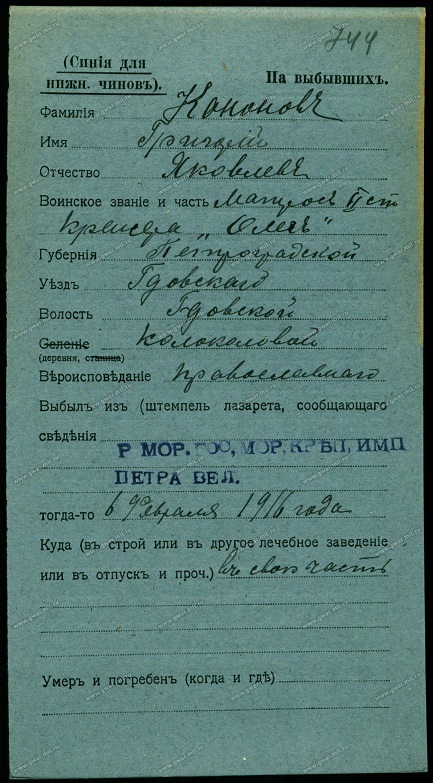 744
(Синія для
нижн. чиновъ).
На выбывшихъ.
Фамилія Кононовъ
Имя Григорій
Отчество Яковлевъ
Воинское званіе и часть Матросъ II ст
крейсера „Олегъ"
Губернія Петроградской
Уѣздъ Гдовскаго
Волость Гдовской
Селеніе Колоколовой
(деревня, станица)
Вѣроисповѣданіе православнаго
Выбылъ изъ (штемпель лазарета, сообщающаго
свѣдѣнія
Р МОР. ГОС, МОР. КРѢП, ИМП
ПЕТРА ВЕЛ.
тогда-то 6 февраля 1916 года
Куда (въ строй или въ другое лечебное заведеніе
или въ отпускъ и проч.) въ свою часть
Умеръ и погребенъ (когда и гдѣ)
www.gwar.mil.ru